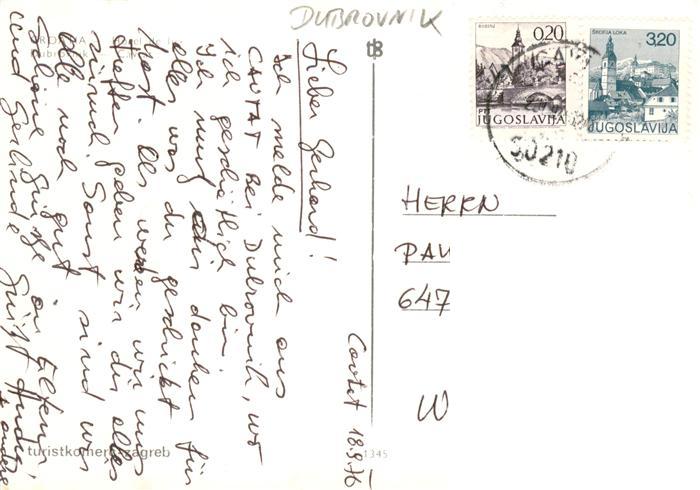 DUBROVNIK
Lieber Gerhard!
Ich melde mich aus
CAVTAT bei Dubrovnik, wo
ich geschäftlich bin.
Ich muß dir danken für
alles was du geschickt
hast. Wenn wir uns
treffen geben wir dir alles
zurück. Sonst sind wir
alle noch gut
Schöne Grüße an Eltern
und Gerlinde
Cavtat 18.9.76
HERRN
PAU
647
W
0,20
BOHINJ
PTT
JUGOSLAVIJA
3,20
ŠKOFJA LOKA
JUGOSLAVIJA
50210
turistkomerc zagreb
1345